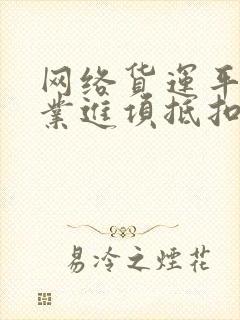 网络货运平
业进项抵扣
易冷之煙花